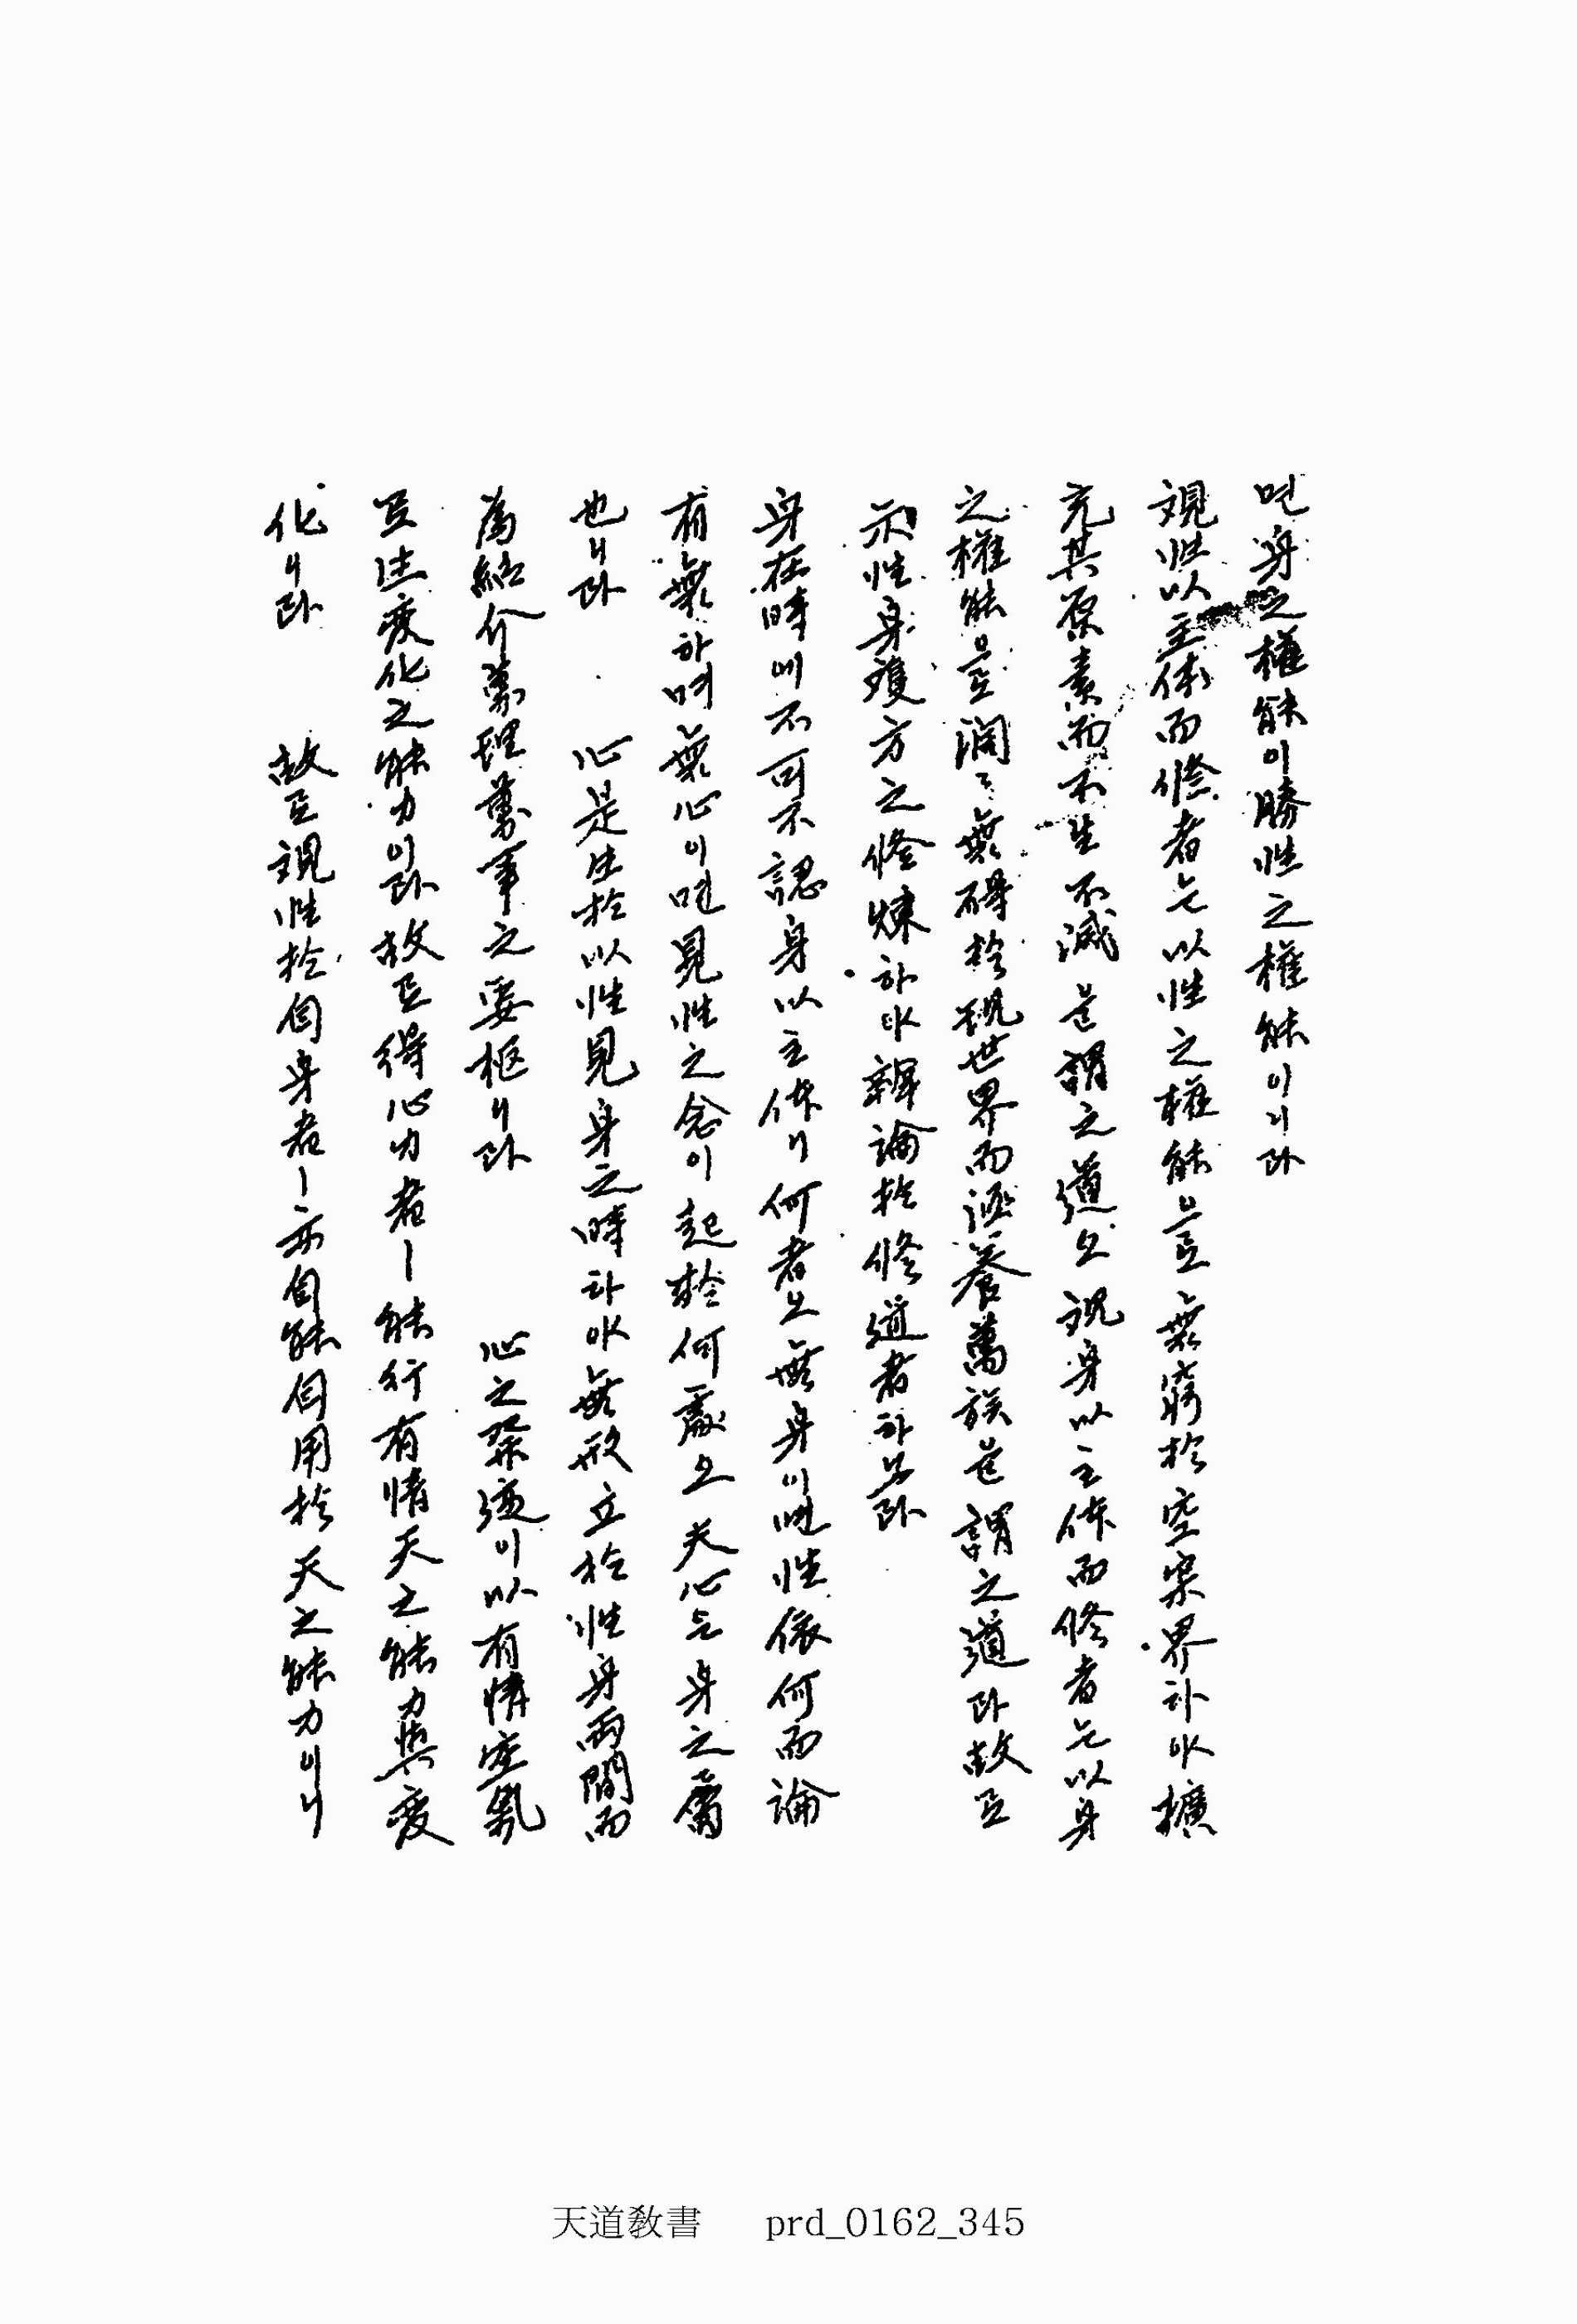 면身之權能이勝性之權能이니라
觀性以主体而修者는以性之權能으로無窮於空寂界하야擴
充其原素而不生不滅을謂之道오視身以主体而修者는以身
之權能으로濶濶無碍於現世界而涵養萬族을謂之道라故로
示性身雙方之修煉하야辯論於修道者하노라
身在時에不可不認身以主体니何者오無身이면性依何而論
有無하며無心이면見性之念이起於何處오夫心은身之屬
也니라 心是生於以性見身之時하야無形立於性身兩間而
爲紹介萬理萬事之要樞니라 心之發遝이以有情空氣
로生變化之能力이라故로得心力者ㅣ能行有情天之能力與變
化니라 故로觀性於自身者ㅣ亦自能自用於天之能力이니
天道教書 prd_0162_345